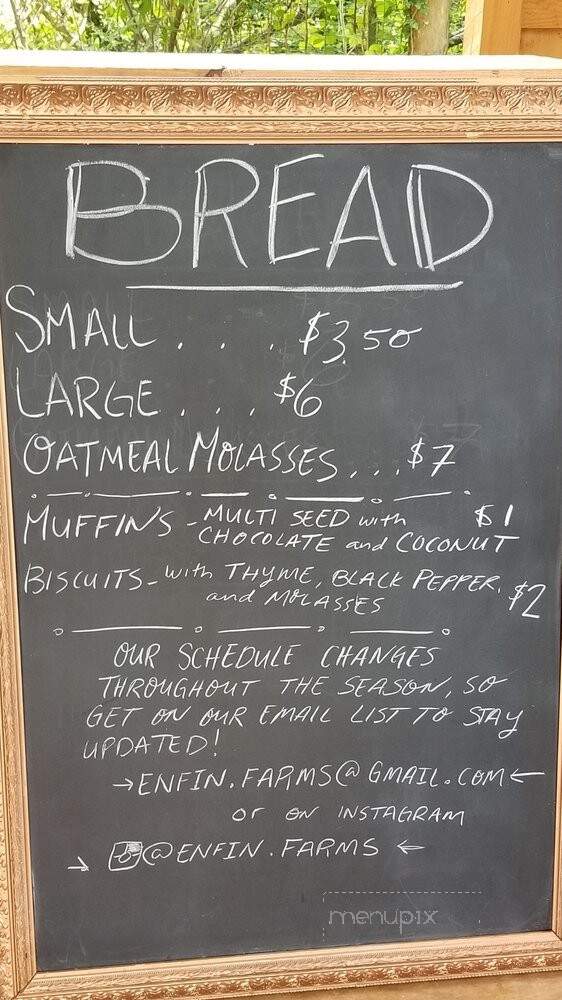 BREAD
SMALL . . . $3.50
LARGE . . . $6
OATMEAL MOLASSES . . . $7
MUFFINS - MULTI SEED with $1
CHOCOLATE and COCONUT
BISCUITS - with THYME, BLACK PEPPER, $2
and MOLASSES
OUR SCHEDULE CHANGES
THROUGHOUT THE SEASON, SO
GET ON OUR EMAIL LIST TO STAY
UPDATED!
→ENFIN.FARMS@GMAIL.COM←
OR ON INSTAGRAM
→ @ENFIN.FARMS ←
menupix